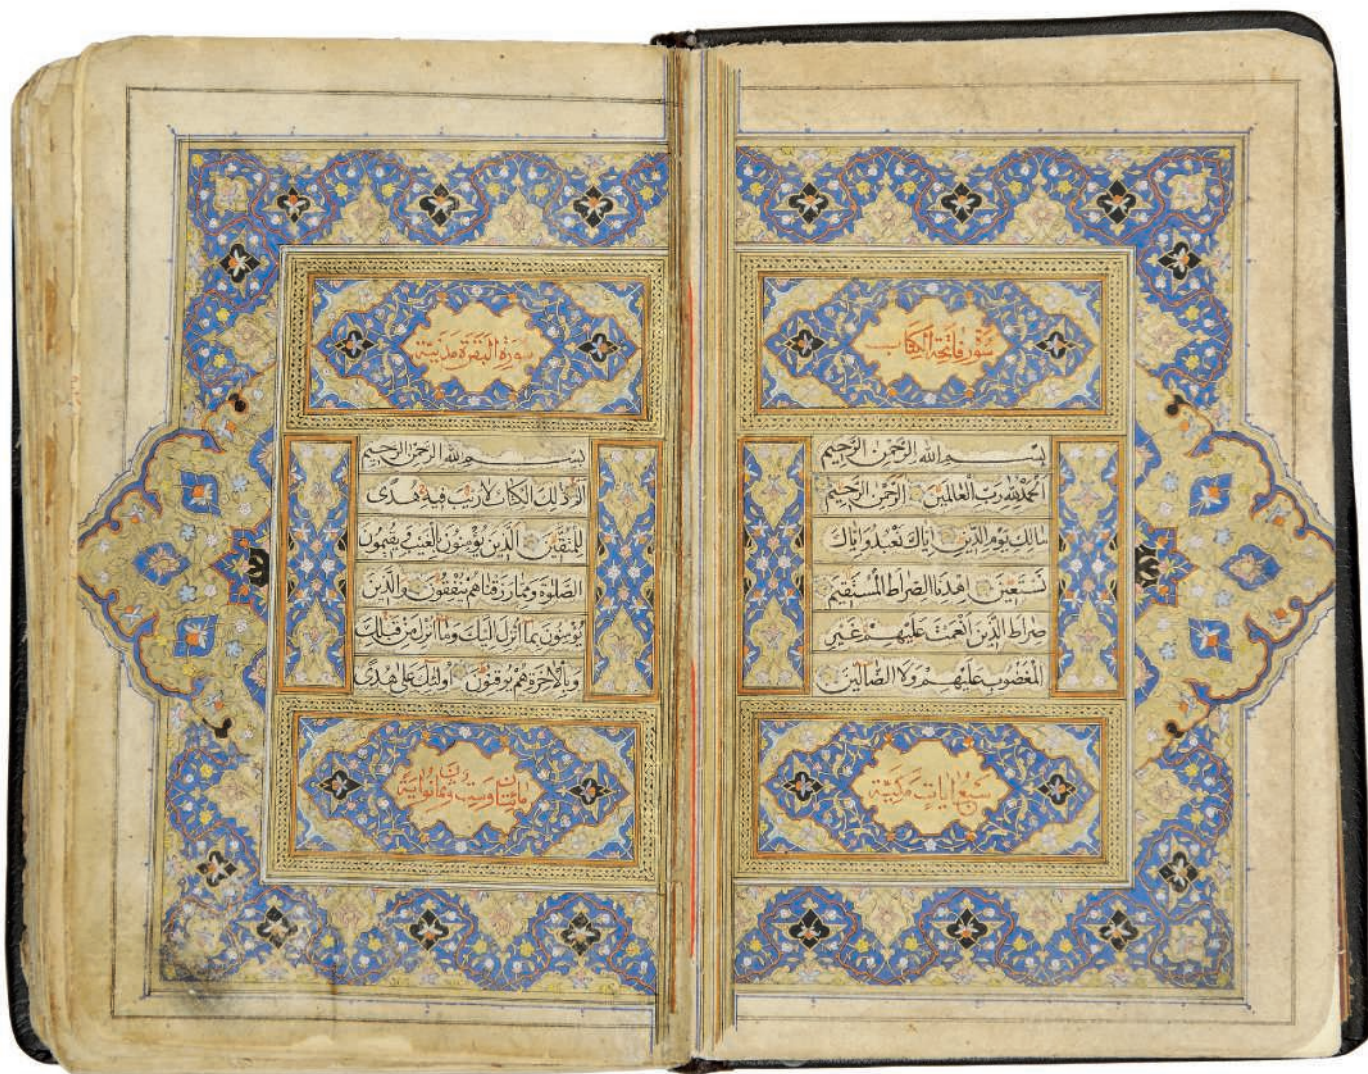 سورة فاتحة الكتاب
بسم الله الرحمن الرحيم
الحمد لله رب العالمين الرحمن الرحيم
مالك يوم الدين اياك نعبد واياك
نستعين اهدنا الصراط المستقيم
صراط الذين انعمت عليهم غير
المغضوب عليهم ولا الضالين
سبع ايات مكية
سورة البقرة مدنية
بسم الله الرحمن الرحيم
الم ذلك الكتاب لا ريب فيه هدى
للمتقين الذين يؤمنون بالغيب ويقيمون
الصلوة ومما رزقناهم ينفقون والذين
يؤمنون بما انزل اليك وما انزل من قبلك
وبالاخرة هم يوقنون اولئك على هدى
مائتان وست وثمانون اية